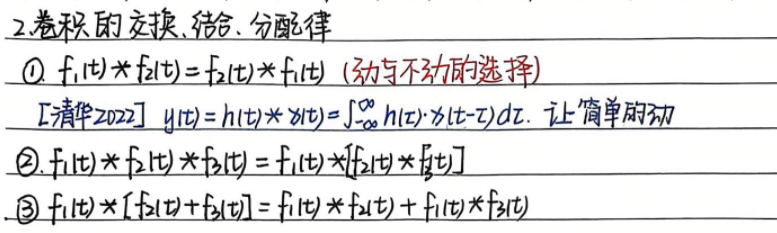 2.卷积的交换、结合、分配律
①. f₁(t)*f₂(t)=f₂(t)*f₁(t) (动与不动的选择)
[清华2022] y(t)=h(t)*x(t)=∫₋∞^∞ h(τ)·x(t-τ)dτ. 让简单的动
②. f₁(t)*f₂(t)*f₃(t)=f₁(t)*[f₂(t)*f₃(t)]
③ f₁(t)*[f₂(t)+f₃(t)]=f₁(t)*f₂(t)+f₁(t)*f₃(t)